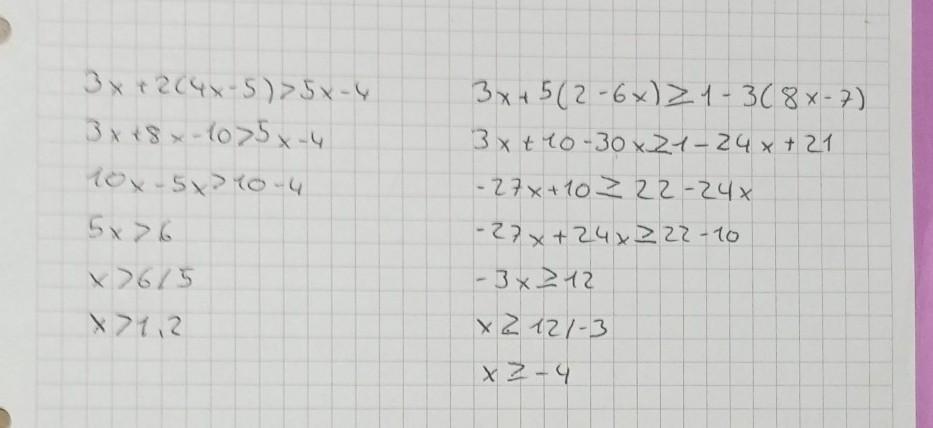 3x+2(4x-5)>5x-4
3x+8x-10>5x-4
10x-5x>10-4
5x>6
x>6/5
x>1,2
3x+5(2-6x)≥1-3(8x-7)
3x+10-30x≥1-24x+21
-27x+10≥22-24x
-27x+24x≥22-10
-3x≥12
x≥12/-3
x≥-4